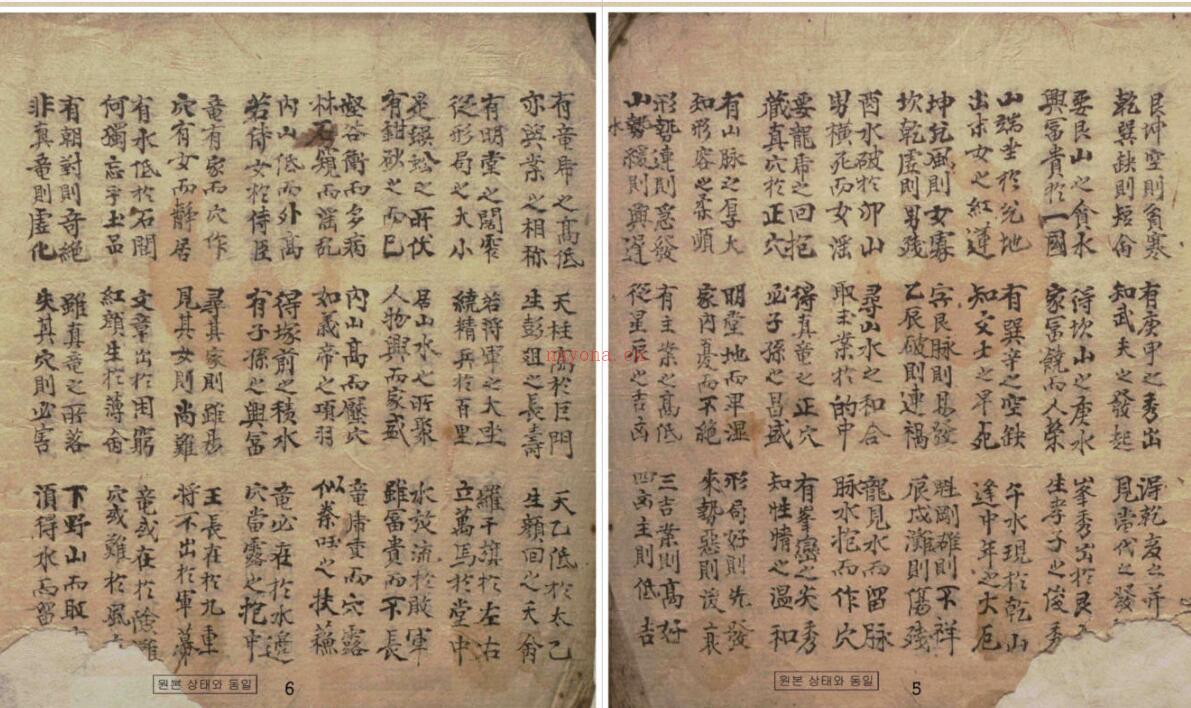 艮坤空則貧寒 有庚甲之秀出 得乾亥之並
乾巽缺則短命 知武夫之發起 見當代之發
要艮山之貪水 得坎山之庚水 峯秀出於艮
興冨貴於一國 家冨饒而人榮 生孝子之俊秀
山端坐於兌地 有巽辛之空缺 午水現於乾山
出宋女之紅蓮 知文士之早死 逢中年之大厄
坤兌風則女寡 字艮脉則易發 魁剛碓則不祥
坎乾虛則男殘 乙辰破則連禍 辰戌灘則傷殘
酉水破於卯山 尋山水之和合 龍見水而留脉
男橫死而女淫 取主業於的中 脉水抱而作穴
要龍席之回抱 得真竜之正穴 有峯巒之尖秀
藏真穴於正穴 必子孫之昌盛 知性情之溫和
有山脉之厚大 明堂地而卑湿 形局好則先發
知形容之柔順 家內憂而不絶 來勢惡則後衰
形勢連則急發 有主業之高低 三吉業則高好
山水勢緩則興遲 從星辰之吉凶 四凶主則低吉
원본 상태와 동일 5
有竜席之高低 天柱高於巨門 天乙低於太乙
亦與業之相称 生彭祖之長壽 生顔回之夭命
有明堂之闊窄 若將軍之大坐 羅千旗於左右
從形局之大小 統精兵於百里 立萬馬於堂中
是蜈蚣之所伏 居山水之所聚 水焂流於敗軍
有鉗砂之而已 人物興而家盛 雖冨貴而不長
壑谷衝而多病 內山高而壓穴 竜席重而穴露
林石窺而淫乱 如義帝之項羽 似秦王之扶蘇
內山低而外高 得塚前之積水 竜必在於水邊
若侍女於侍臣 有子孫之興冨 穴當露之抱中
竜有家而穴作 尋其家則雖步 王長在於九重
穴有女而靜居 見其女則尚難 將不出於軍幕
有水低於石間 文章出於困窮 竜或在於險難
何獨忘乎土品 紅顏生於薄命 穴或難於
有朝對則奇絕 雖真竜之所落 下野山而取
非真竜則虛化 失其穴則必害 湏得水而留
원본 상태와 동일 6
miyona.ck